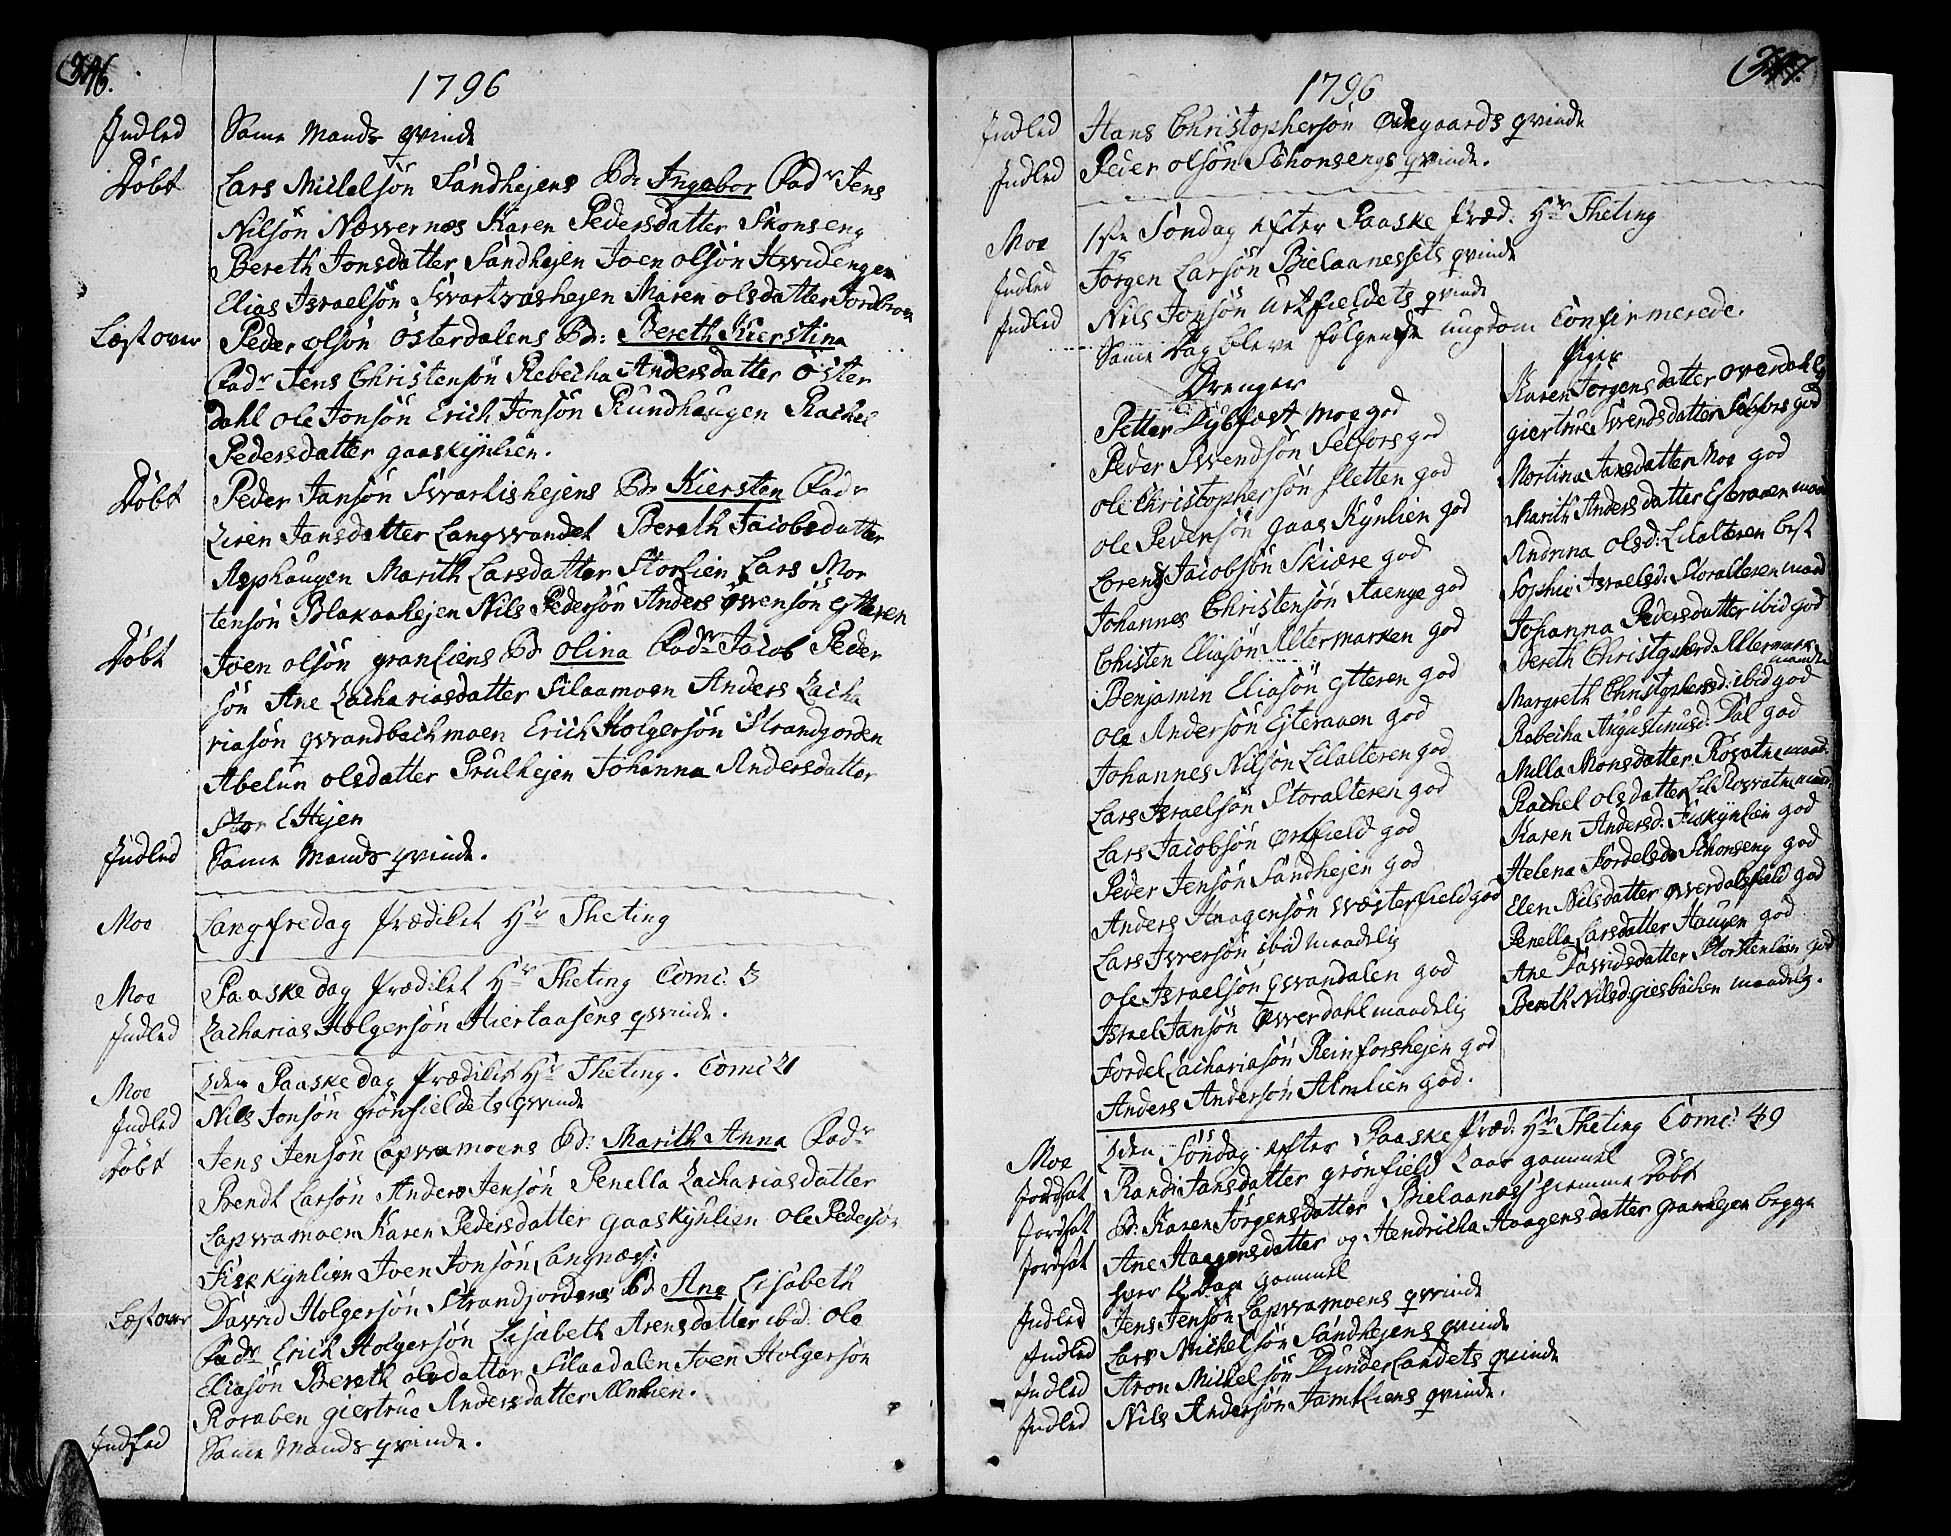 346.
1796
Indled Same Mands qvinde
Döbt Lars Mickelsön Sandhejens Bd: Ingebor Fad:r Jens
Nilsön Næwernæs Karen Pedersdatter Skonseng
Bereth Jonsdatter Sandhejen Joen olsön Hvidengen
Elias Israelsön Svartvashejen Maren olsdatter Jordbroen
Læst over Peder olsön Österdalens Bd: Bereth Kierstina
Fad:r Jens Christensön Rebecha Andersdatter Öster
dahl ole Jonsön Erich Jonsön Rundhaugen Rachel
Pedersdatter gaaskynlien.
Döbt Peder Jansön Svartishejens Bd: Kiersten Fad:r
Siren Jansdatter Langvandet Bereth Jacobsdatter
Asphaugen Marith Larsdatter Storlien Lars Mor
tensön Blakaahejen Nils Pedersön Anders Svensön ytteren
Döbt Joen olsön granliens Bd: olina Fad:r Jacob Peder
sön Ane Zachariasdatter Silaamoen Anders Zacha
riasön qvandbachmoen Erich Holgersön Strandjorden
Abelun olsdatter Prulhejen Johanna Andersdatter
Stor Ehejen
Indled Same Mands qvinde.
Moe Langfredag Prædiket Hr Theting
Moe Paaske dag Prædiket Hr Theting Comc: 3
Indled Zacharias Holgersön Hiertaasens qvinde.
Moe 2den Paaske dag Prædiket Hr Theting. Comc 21
Indled Nils Jonsön grönfieldets qvinde
Döbt Jens Jensön Lapvamoens Bd: Marith Anna Fad:r
Bendt Larsön Anders Jensön Penella Zachariasdatter
Lapvamoen Karen Pedersdatter gaaskynlien ole Pedersön
Fiskkynlien Joen Jonsön Langnæss.
Læst over David Holgersön Strandjordens Bd: Ane Lisabeth
Fad:r Erich Holgersön Lisabeth Arensdatter ibid: ole
Eliasön Bereth olsdatter Silaadalen Joen Holgersön
Roraben giertrue Andersdatter Almlien.
Indled Same Mands qvinde.
347.
1796
Indled Hans Christophersön Ödegaards qvinde
Indled Peder olsön Schonsengs qvinde.
Moe 1ste Söndag efter Paaske Præd. Hr Theting
Indled Jörgen Larsön Bielaanessets qvinde
Indled Nils Jonsön Urtfieldets qvinde
Same dag bleve fölgende ungdom Confirmerede.
Drenger
Petter Dybfest Moe god
Peder Svendsön Selfors god
ole Christophersön Sletten god
ole Pedersön gaas Kynlien god
Lorens Jacobsön Skiære god
Johannes Christensön Staenge god
Christen Eliasön Altermarken god
Benjamin Eliasön ytteren god
ole Andersön Ytteraaen god
Johannes Nilsön Lilalteren god
Lars Israelsön Storalteren god
Lars Jacobsön Ørtfield god
Peder Jensön Sandhejen god
Anders Haagensön Wæsterfield god
Lars Iversön ibid maadelig
ole Israelsön qvandalen god
Israel Jansön Øverdahl maadelig
Fordel Zachariasön Reinforshejen god
Anders Andersön Almlien god.
Piger
Karen Jörgensdatter overdahl
giertrue Svendsdatter Selfors god
Mortina Jansdatter Moe god
Marith Andersdatter Ytteraaen maad
Andrina olsd: Lilalteren best
Sophie Israelsd: Storalteren maad
Johanna Pedersdatter ibid god
Bereth Christopherd: Altermark
maad
Margreth Christophersd: ibid god
Rebecha Augustinusd: Dal god
Milla Monsdatter Rösvatn maad.
Rachel olsdatter Lil Rösvatn maad.
Karen Andersd: Fiskynlien god
Helena Fordelsd Schonseng god
Elen Nilsdatter overdalsfield god
Penella Larsdatter Haugen god
Ane Davidsdatter Stortenlien god
Bereth Nilsd: giesbachen maadelig.
Moe 2den Söndag efter Paaske Præd. Hr Theting Comc: 49
Jordsat Randi Jansdatter grönfield 2 aar gammel
Jordsat Bd: Karen Jörgensdatter Bielaanæss hiemme Döbt
Jordsat Ane Haagensdatter og Hendricha Haagensdatter granhejen begge
hver 12 dage gammel
Indled Jens Jensön Lapvamoens qvinde
Indled Lars Michelsön Sandhejens qvinde
Indled Aron Mickelsön Dunderlandets qvinde
Indled Nils Andersön Jamtliens qvinde.